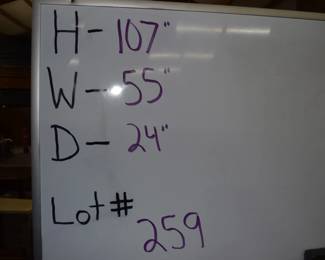 H- 107"
W- 55"
D- 24"
Lot#
259